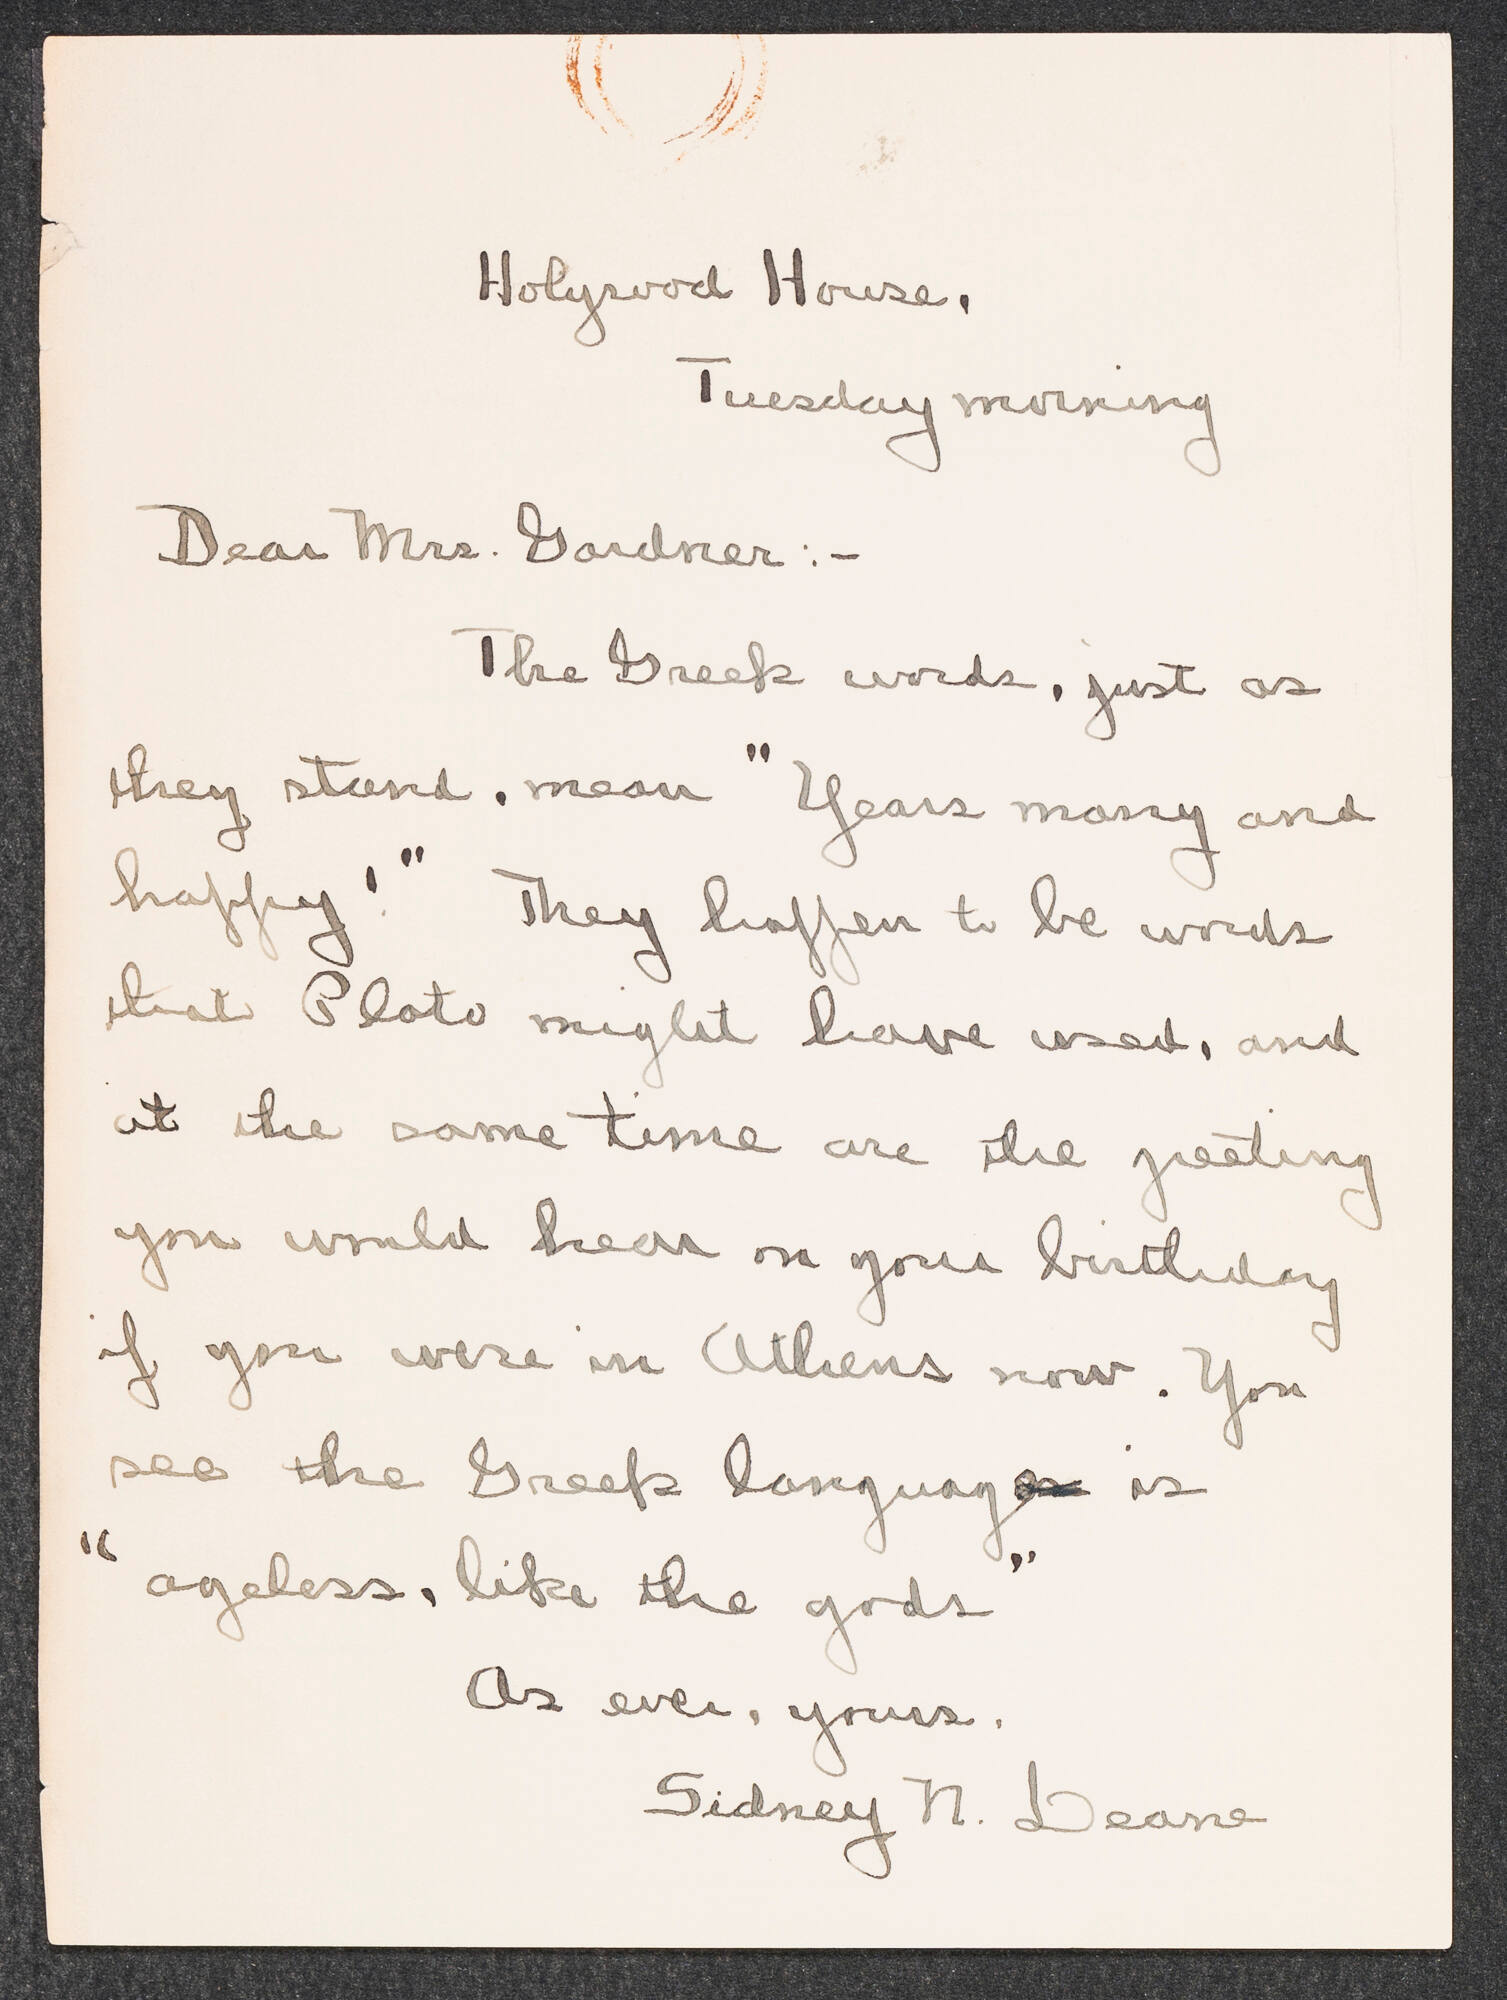 Holyrood House,
Tuesday morning
Dear Mrs. Gardner:-
The Greek words, just as
they stand, mean "Years many and
happy!" They happen to be words
that Plato might have used, and
at the same time are the greeting
you would hear on your birthday
if you were in Athens now. You
see the Greek language is
"ageless, like the gods"
As ever, yours,
Sidney N. Deane